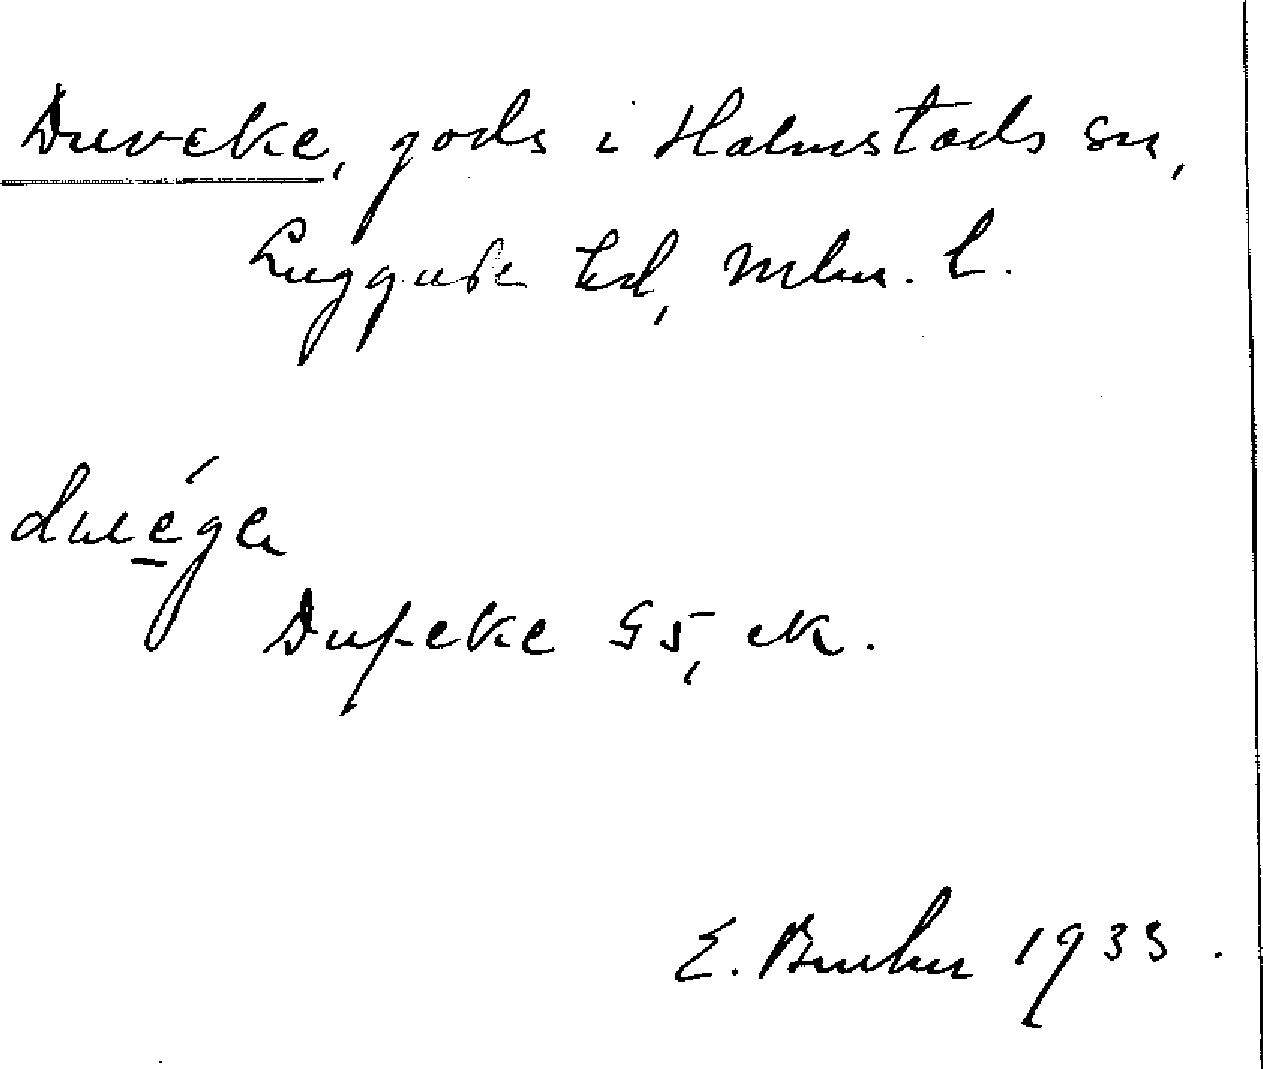 Duveke, gods i Halmstads sn,
Luggude hd, Mlm. l.
duéga
Dufeke G5, ek.
E. 1933.